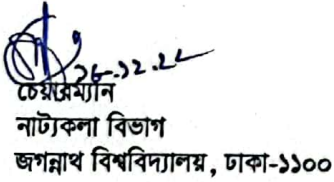 চেয়ারম্যান
নাট্যকলা বিভাগ
জগন্নাথ বিশ্ববিদ্যালয়, ঢাকা-১১০০